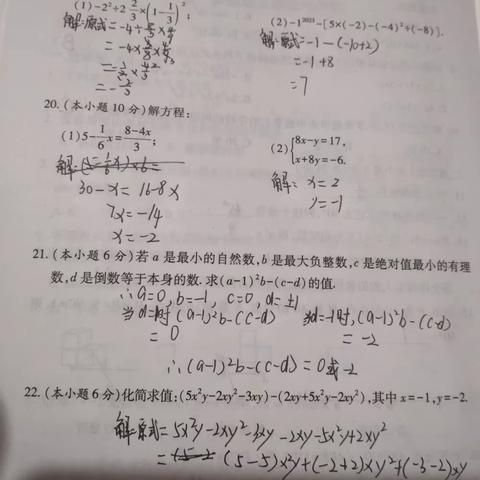 (1)-2²÷2 2/3×(1-1/3)²
解:原式=-4÷8/3×4/9
=-4×3/8×4/9
(2)-1²⁰²³-[5×(-2)-(-4)²÷(-8)].
解:原式=-1-(-10+2)
=-1+8
=7
20.(本小题10分)解方程:
(1)5-1/6x=(8-4x)/3;
30-x=16-8x
7x=-14
x=-2
(2){8x-y=17,
x+8y=-6.
解: x=2
y=-1
21.(本小题6分)若a是最小的自然数,b是最大负整数,c是绝对值最小的有理
数,d是倒数等于本身的数.求(a-1)²b-(c-d)的值.
∴a=0,b=-1,c=0,d=±1
当d=1时,(a-1)²b-(c-d)
=0
当d=-1时,(a-1)²b-(c-d)
=-2
∴(a-1)²b-(c-d)=0或-2
22.(本小题6分)化简求值:(5x²y-2xy²-3xy)-(2xy+5x²y-2xy²),其中x=-1,y=-2.
解:原式=5x²y-2xy²-3xy-2xy-5x²y+2xy²
=(5-5)x²y+(-2+2)xy²+(-3-2)xy